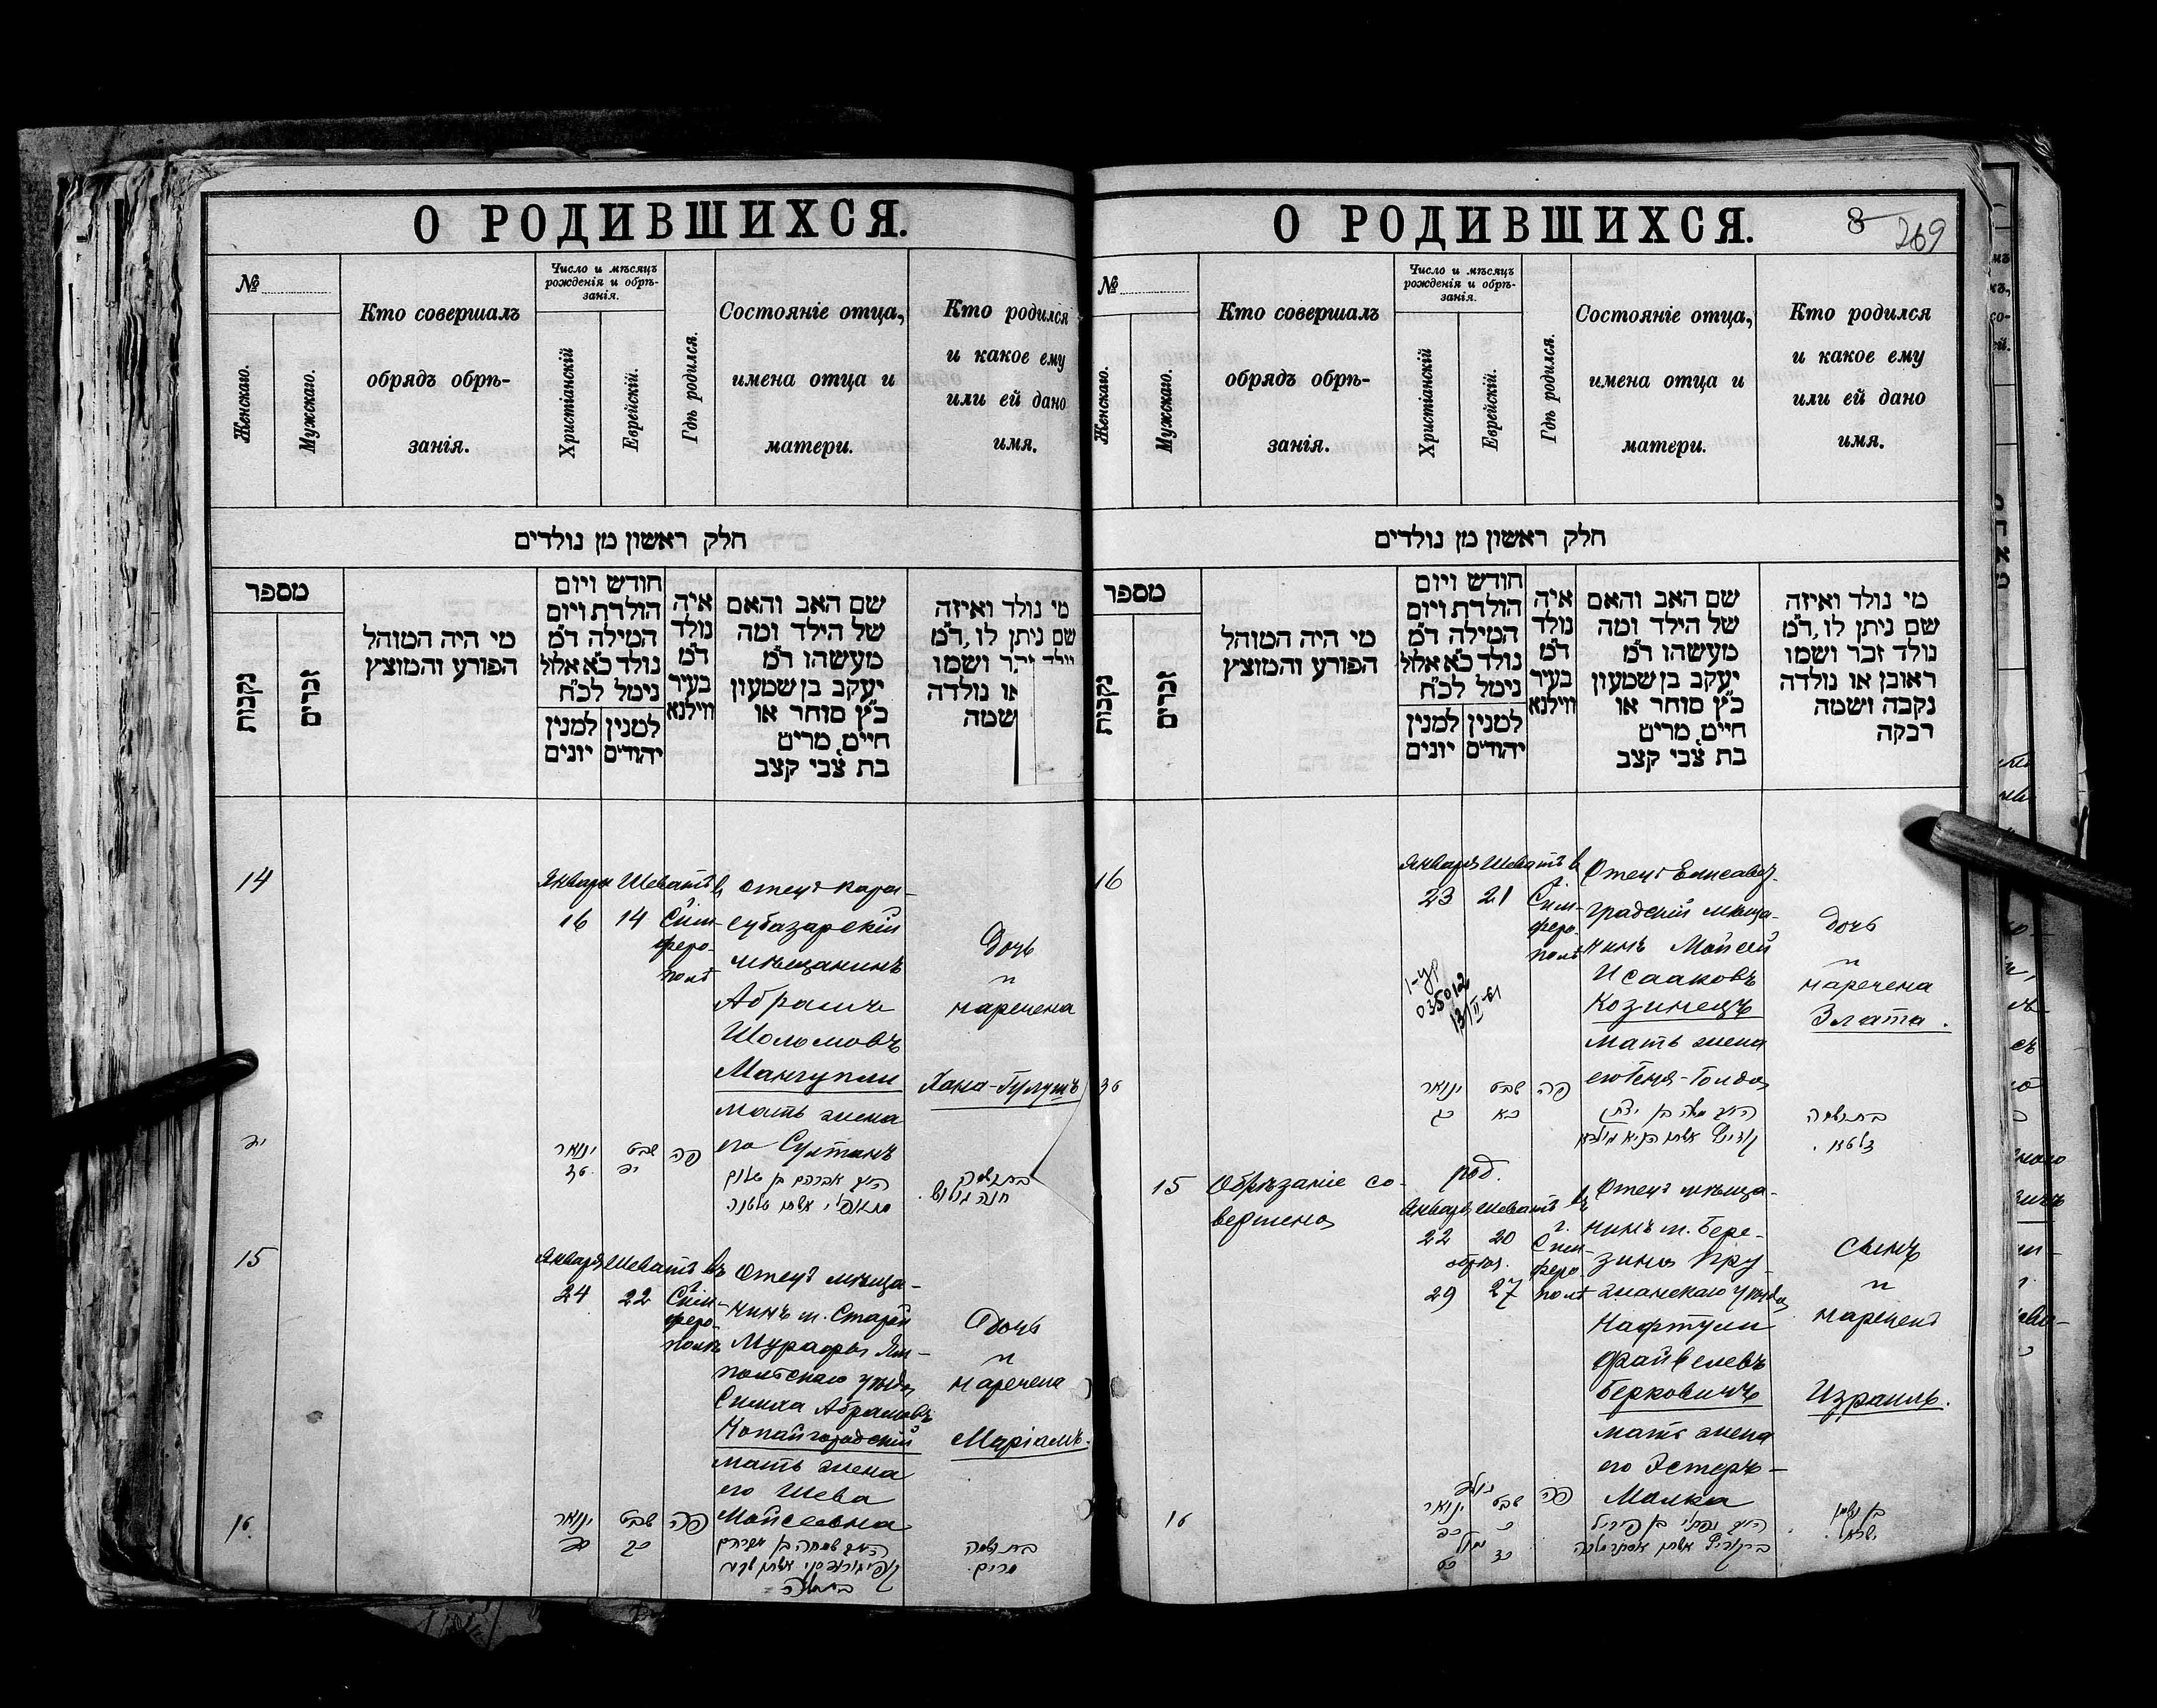 О РОДИВШИХСЯ.
№
Женскаго.
Мужскаго.
Кто совершалъ
обрядъ обрѣ-
занія.
Число и мѣсяцъ
рожденія и обрѣ-
занія.
Христіанскій
Еврейскій.
Гдѣ родился.
Состояніе отца,
имена отца и
матери.
Кто родился
и какое ему
или ей дано
имя.
חלק ראשון מן נולדים
מספר
נקבות
זכרים
מי היה המוהל
הפורע והמוצץ
חודש ויום
הולדת ויום
המילה ד״מ
נולד כ״א אלול
נימל לכ״ח
למנין יונים
למנין יהודים
איה
נולד
ד״מ
בעיר
ווילנא
שם האב והאם
של הילד ומה
מעשהו ד״מ
יעקב בן שמעון
כ״ץ סוחר או
חיים, מרים
בת צבי קצב
מי נולד ואיזה
שם ניתן לו, ד״מ
ושמו
או נולדה
ושמה
14
Января Шеватъ въ
16 14
г. Сим-
феро-
полѣ
Отецъ Кара-
субазарскій
мѣщанинъ
Абрамъ
Шоломовъ
Мангупли
мать жена
его Султанъ
Дочь
и
наречена
Хана-Гулушъ
יד
ינואר שבט פה
טז יד
היע אברהם בן שלום
מאנגופלי אשתו סלטנה
בת ושמה
חנה גולוש.
15
Января Шеватъ въ
24 22
г. Сим-
феро-
полѣ
Отецъ мѣща-
нинъ м. Старой
Мурафы Ям-
польскаго уѣзда
Симха Абрамовъ
Копайгородскій
мать жена
его Шева
Мойсеевна
Дочь
и
наречена
Маріамъ.
ינואר שבט פה
כד כב
בת ושמה
מרים.
О РОДИВШИХСЯ.
8
269
№
Женскаго.
Мужскаго.
Кто совершалъ
обрядъ обрѣ-
занія.
Число и мѣсяцъ
рожденія и обрѣ-
занія.
Христіанскій
Еврейскій.
Гдѣ родился.
Состояніе отца,
имена отца и
матери.
Кто родился
и какое ему
или ей дано
имя.
חלק ראשון מן נולדים
מספר
נקבות
זכרים
מי היה המוהל
הפורע והמוצץ
חודש ויום
הולדת ויום
המילה ד״מ
נולד כ״א אלול
נימל לכ״ח
למנין יונים
למנין יהודים
איה
נולד
ד״מ
בעיר
ווילנא
שם האב והאם
של הילד ומה
מעשהו ד״מ
יעקב בן שמעון
כ״ץ סוחר או
חיים, מרים
בת צבי קצב
מי נולד ואיזה
שם ניתן לו, ד״מ
נולד זכר ושמו
ראובן או נולדה
נקבה ושמה
רבקה
16
Января Шеватъ въ
23 21
г. Сим-
феро-
полѣ
Отецъ Елисавет-
градскій мѣща-
нинъ Мойсей
Исааковъ
Козинецъ
мать жена
его Геня-Голда
Дочь
и
наречена
Злата.
טז
ינואר שבט פה
כג כא
בת ושמה
זלטא.
15
Обрѣзаніе со-
вершено
род.
Января Шеватъ въ
22 20
обрѣз.
29 27
г. Сим-
феро-
полѣ
Отецъ мѣща-
нинъ м. Бере-
зина Пру-
жанскаго уѣзда
Нафтули
Файвелевъ
Берковичъ
мать жена
его Эстеръ-
Малка
Сынъ
и
нареченъ
Израиль.
נולד
ינואר שבט פה
כב כ
נימול
כט כז
בן ושמו
ישראל.